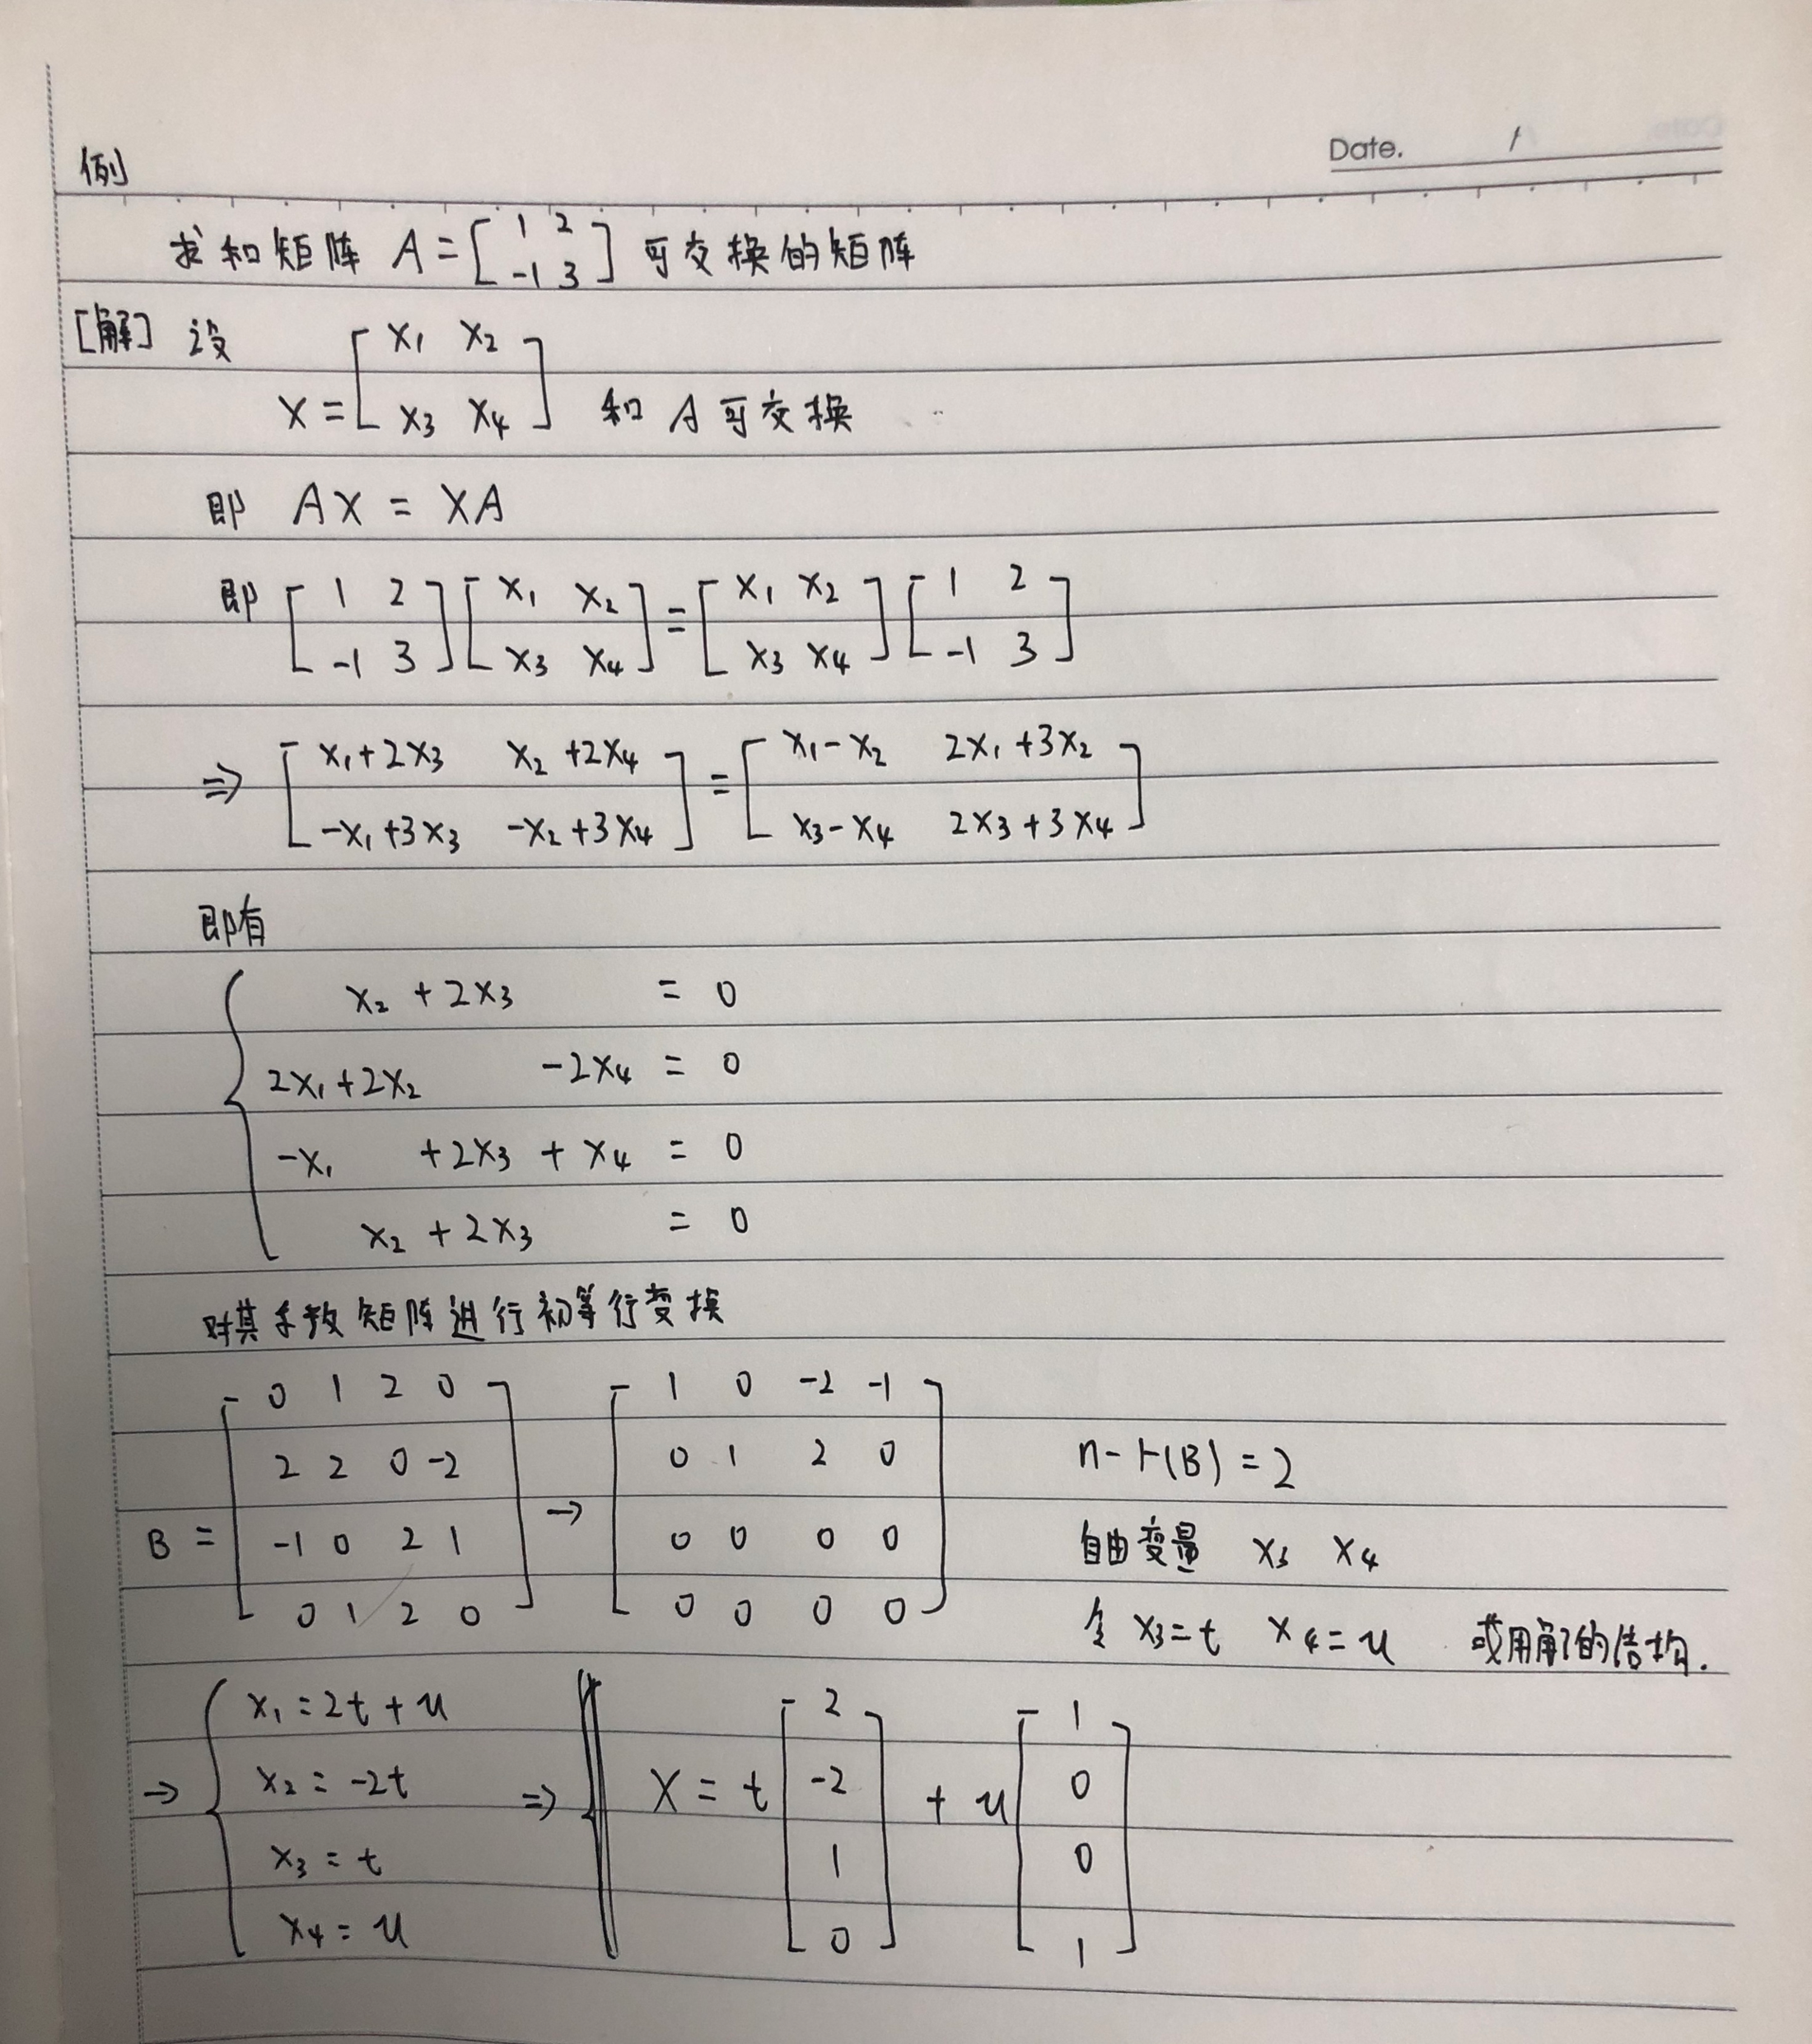 Date. /
例
求和矩阵 A = [1 2; -1 3] 可交换的矩阵
[解] 设
X = [x₁ x₂; x₃ x₄] 和 A 可交换
即 AX = XA
即 [1 2; -1 3] [x₁ x₂; x₃ x₄] = [x₁ x₂; x₃ x₄] [1 2; -1 3]
⇒ [x₁+2x₃ x₂+2x₄; -x₁+3x₃ -x₂+3x₄] = [x₁-x₂ 2x₁+3x₂; x₃-x₄ 2x₃+3x₄]
即有
x₂ + 2x₃ = 0
2x₁ + 2x₂ - 2x₄ = 0
-x₁ + 2x₃ + x₄ = 0
x₂ + 2x₃ = 0
对其系数矩阵进行初等行变换
B = [0 1 2 0; 2 2 0 -2; -1 0 2 1; 0 1 2 0] → [1 0 -2 -1; 0 1 2 0; 0 0 0 0; 0 0 0 0]
n - r(B) = 2
自由变量 x₃ x₄
令 x₃=t x₄=u 或用解的结构.
→ { x₁ = 2t + u
x₂ = -2t
x₃ = t
x₄ = u
⇒ X = t [2; -2; 1; 0] + u [1; 0; 0; 1]